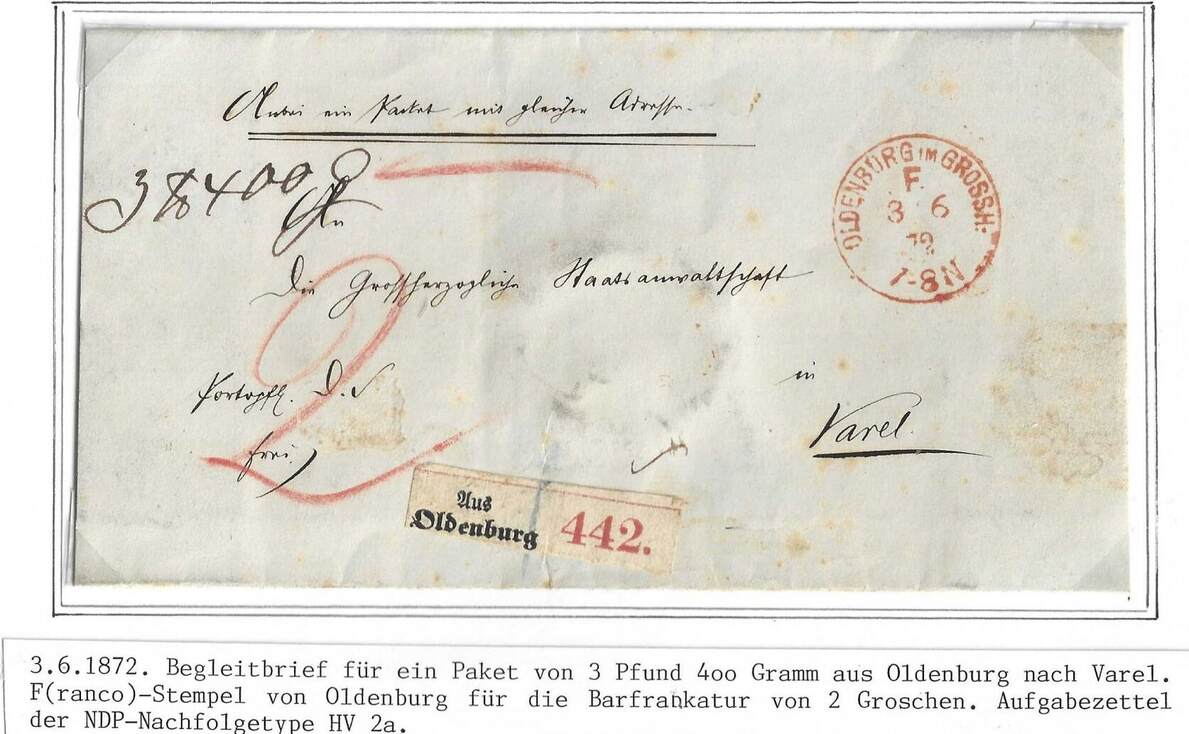 Anbei ein Packet mit gleicher Adresse.
3 ℔ 400 g
An
Die Grossherzogliche Staatsanwaltschaft
in
Varel.
Portopfl. D. S
frei.
2
OLDENBURG IM GROSSH.
F
3 6
72
7-8N
Aus
Oldenburg
442.
3.6.1872. Begleitbrief für ein Paket von 3 Pfund 4oo Gramm aus Oldenburg nach Varel.
F(ranco)-Stempel von Oldenburg für die Barfrankatur von 2 Groschen. Aufgabezettel
der NDP-Nachfolgetype HV 2a.